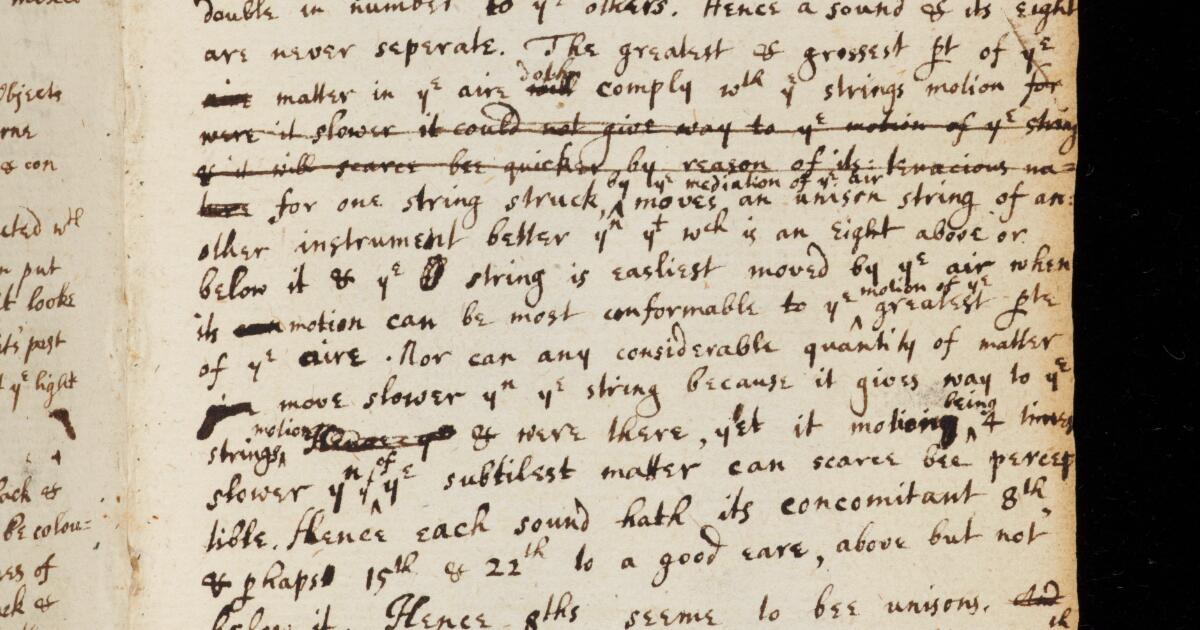 double in number to yᵉ others. Hence a sound & its eight
are never seperate. The greatest & grossest p̱t of yᵉ
aire matter in yᵉ aire will doth comply wᵗʰ yᵉ strings motion for
were it slower it could not give way to yᵉ motion of yᵉ string
& it will scarce bee quicker by reason of its tenacious na=
ture for one string struck, by yᵉ mediation of yᵉ air moves an unison string of an:
other instrument better yⁿ yᵗ wᶜʰ is an Eight above or
below it & yᵉ string is easliest moved by yᵉ air when
its motion can be most conformable to yᵉ motion of yᵉ greatest p̱te
of yᵉ aire. Nor can any considerable quantity of matter
move slower yⁿ yᵉ string because it gives way to yᵉ
strings motion & were there, yet it being 4 times
slower yⁿ yᵗ of yᵉ subtilest matter can scarce bee percep
tible. Hence each sound hath its concomitant 8ᵗʰ,
& p̱haps 15ᵗʰ & 22ᵗʰ to a good eare, above but not
below it. Hence 8ths seeme to bee unisons. And
Objects
rne
& con
cted wᵗʰ
n put
t looke
it's past
yᵉ light
lack &
be colou=
res of
ck &